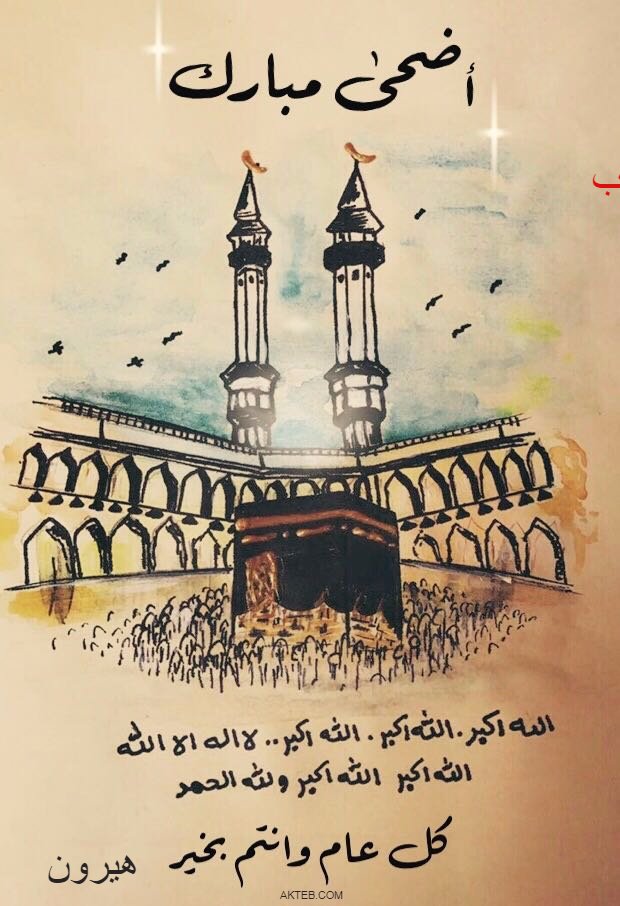 أضحىٰ مبارك
الله اكبر . الله اكبر . الله اكبر .. لا اله الا الله
الله اكبر الله اكبر ولله الحمد
كل عام وانتم بخير
هيرون
AKTEB.COM